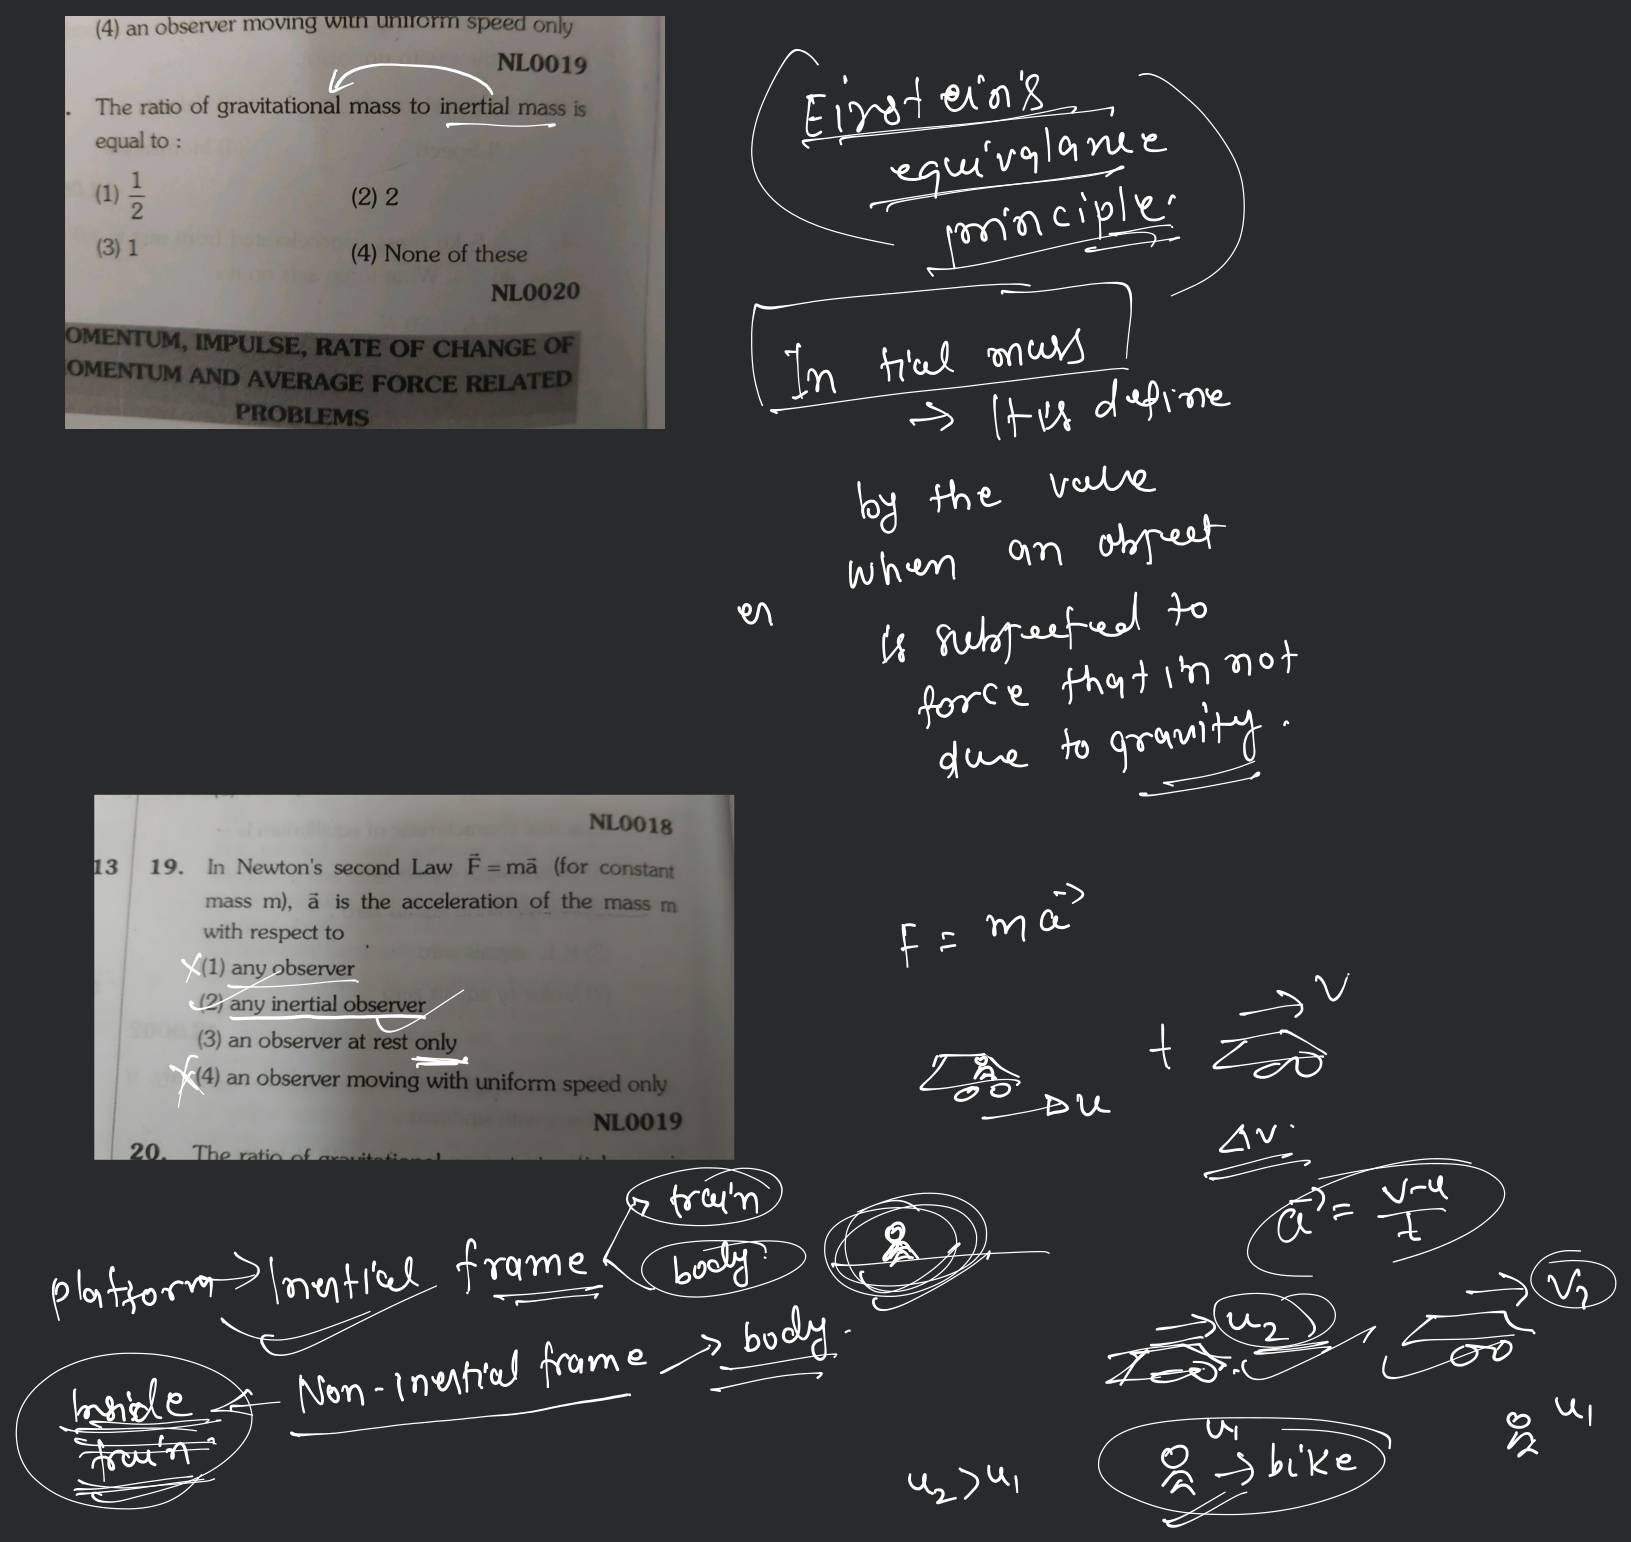 (4) an observer moving with uniform speed only
NL0019
. The ratio of gravitational mass to inertial mass is
equal to :
(1) 1/2 (2) 2
(3) 1 (4) None of these
NL0020
OMENTUM, IMPULSE, RATE OF CHANGE OF
OMENTUM AND AVERAGE FORCE RELATED
PROBLEMS
Einstein's
equivalance
principle.
In tial mass
→ It is define
by the value
when an object
is subjected to
force that in not
due to gravity.
NL0018
13 19. In Newton's second Law F⃗ = ma⃗ (for constant
mass m), a⃗ is the acceleration of the mass m
with respect to
(1) any observer
(2) any inertial observer
(3) an observer at rest only
(4) an observer moving with uniform speed only
NL0019
20. The ratio of gravitational
F = ma⃗
→ V
t
→ u
Δv.
a⃗ = v-u/t
platform → Inertial frame → train
body
Non-inertial frame → body.
Inside
train
→ u2
→ V2
u1
→ bike
u1
u2 > u1